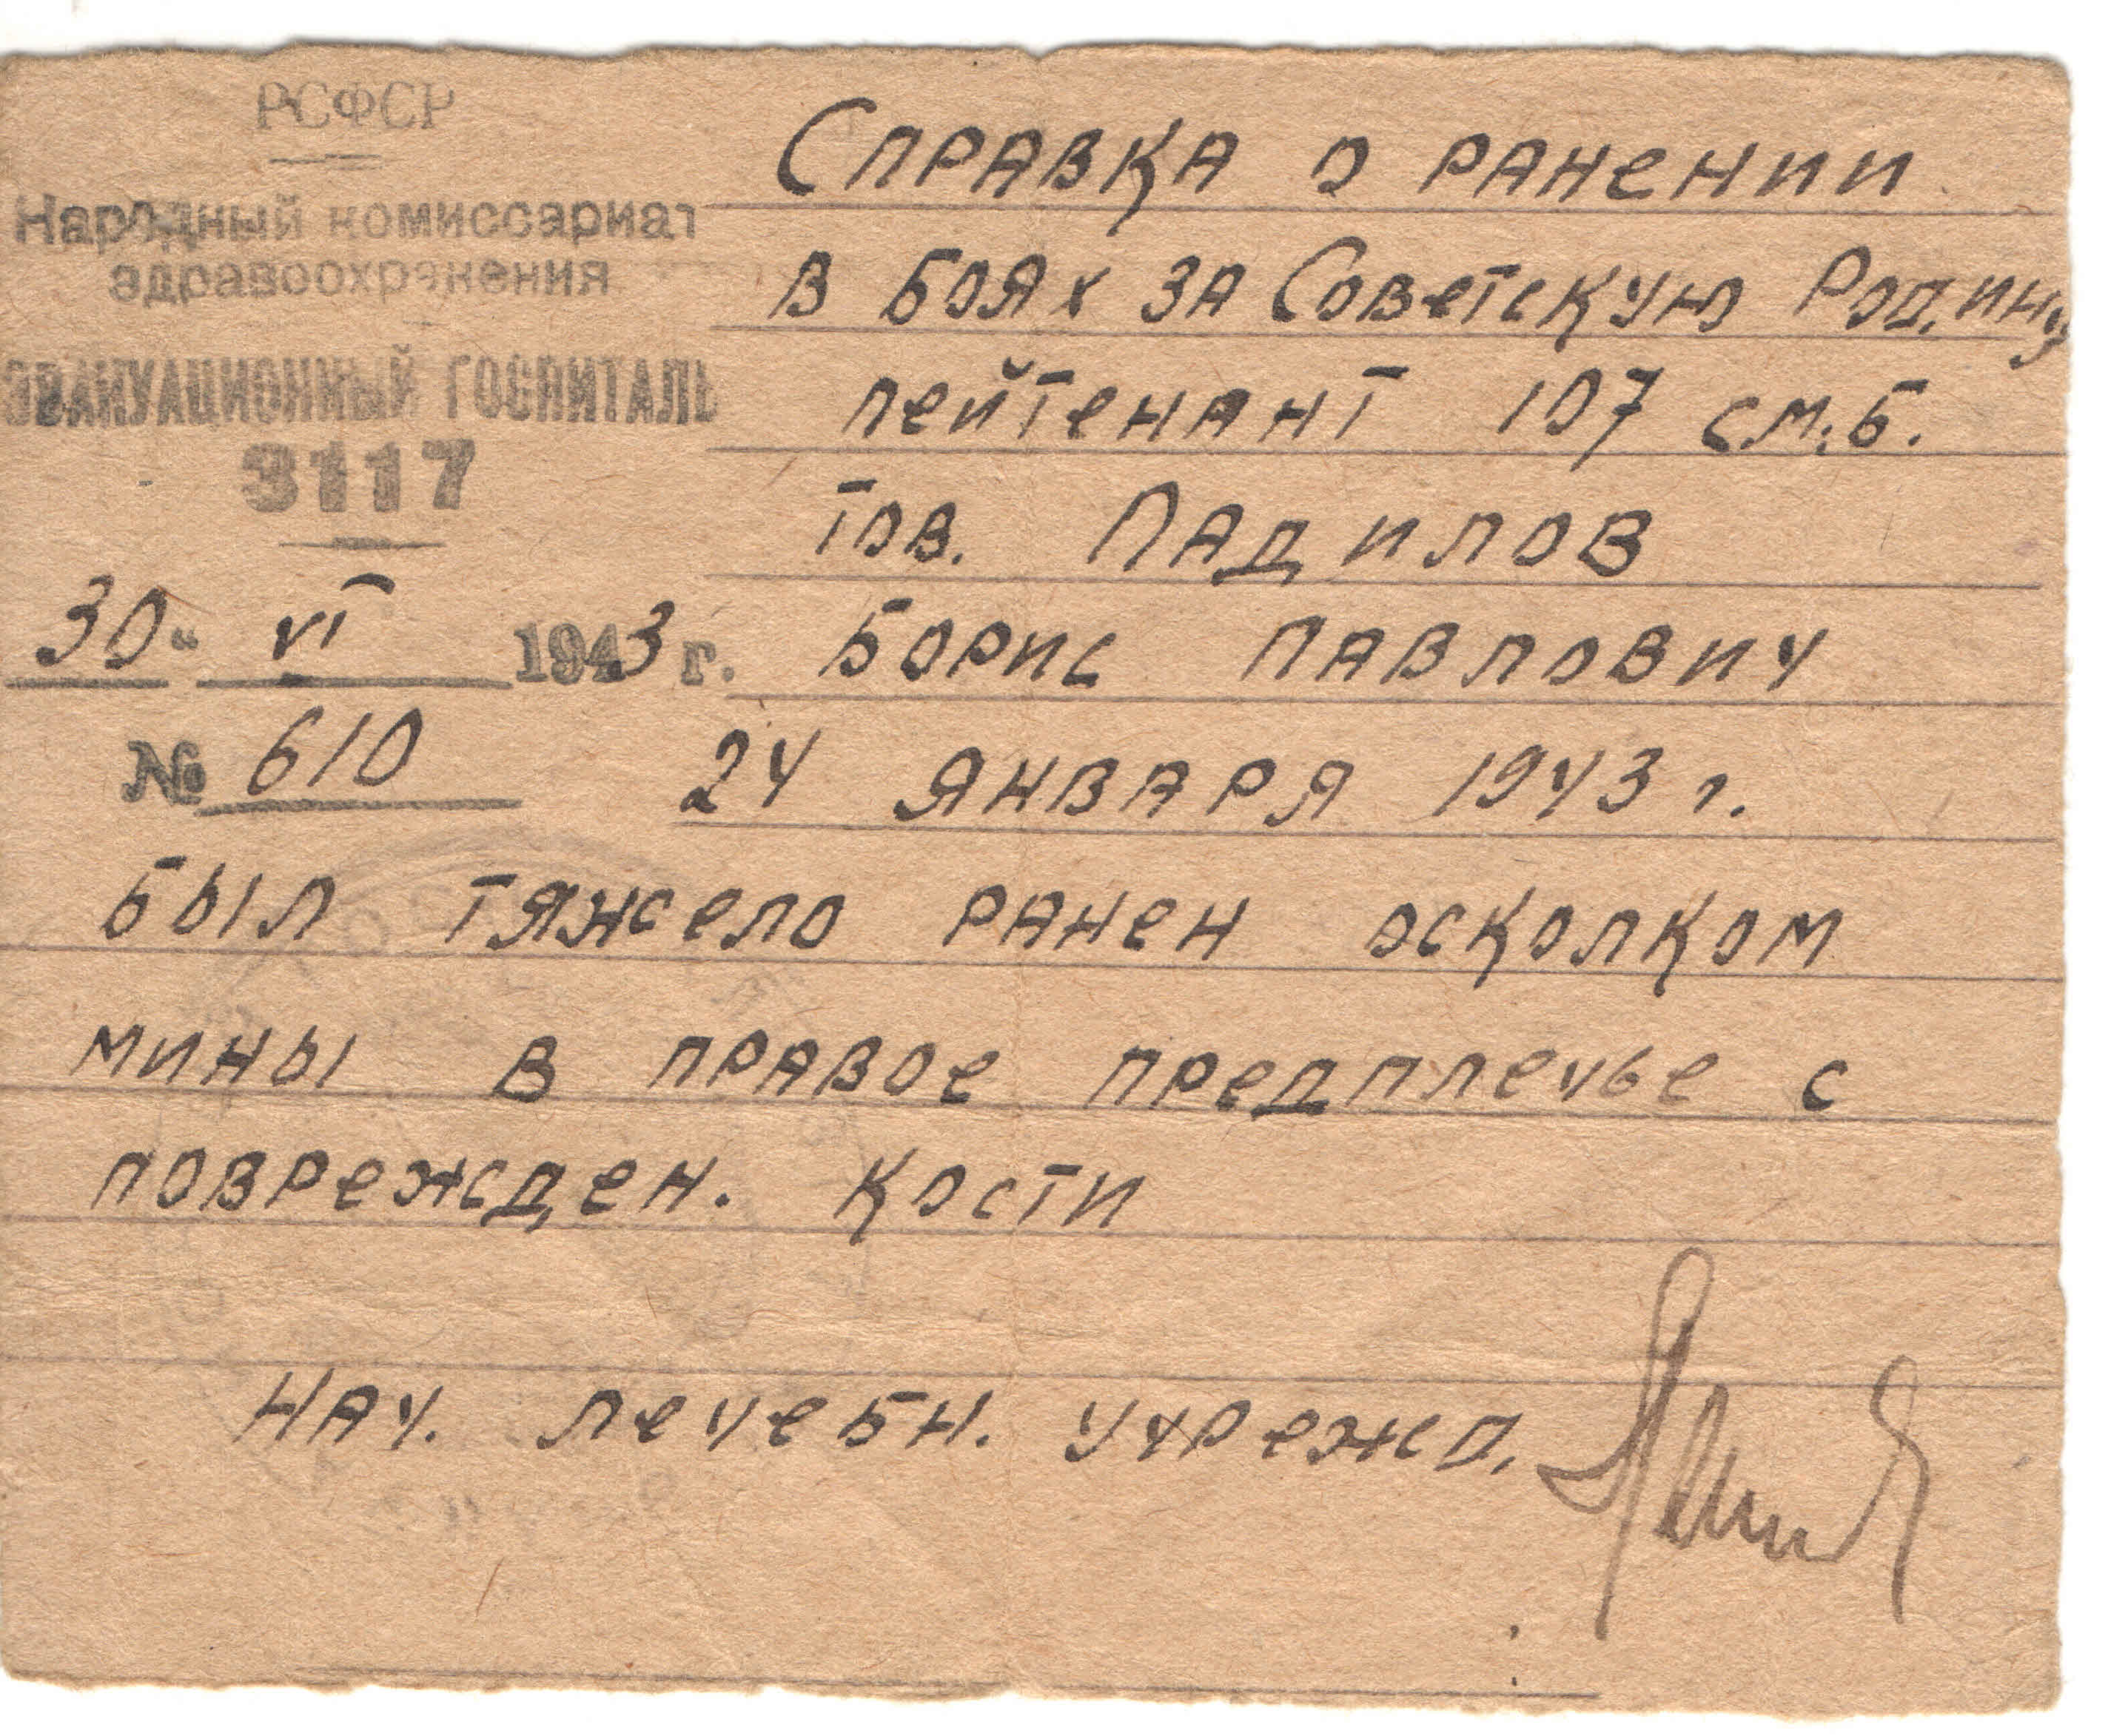 РСФСР
Народный комиссариат
здравоохранения
ЭВАКУАЦИОННЫЙ ГОСПИТАЛЬ
3117
30 " VI 1943 г.
№ 610
Справка о ранении
в боях за Советскую Родину
лейтенант 107 см.б.
тов. Падилов
Борис Павлович
24 января 1943 г.
был тяжело ранен осколком
мины в правое предплечье с
поврежден. кости
Нач. лечебн. учрежд.